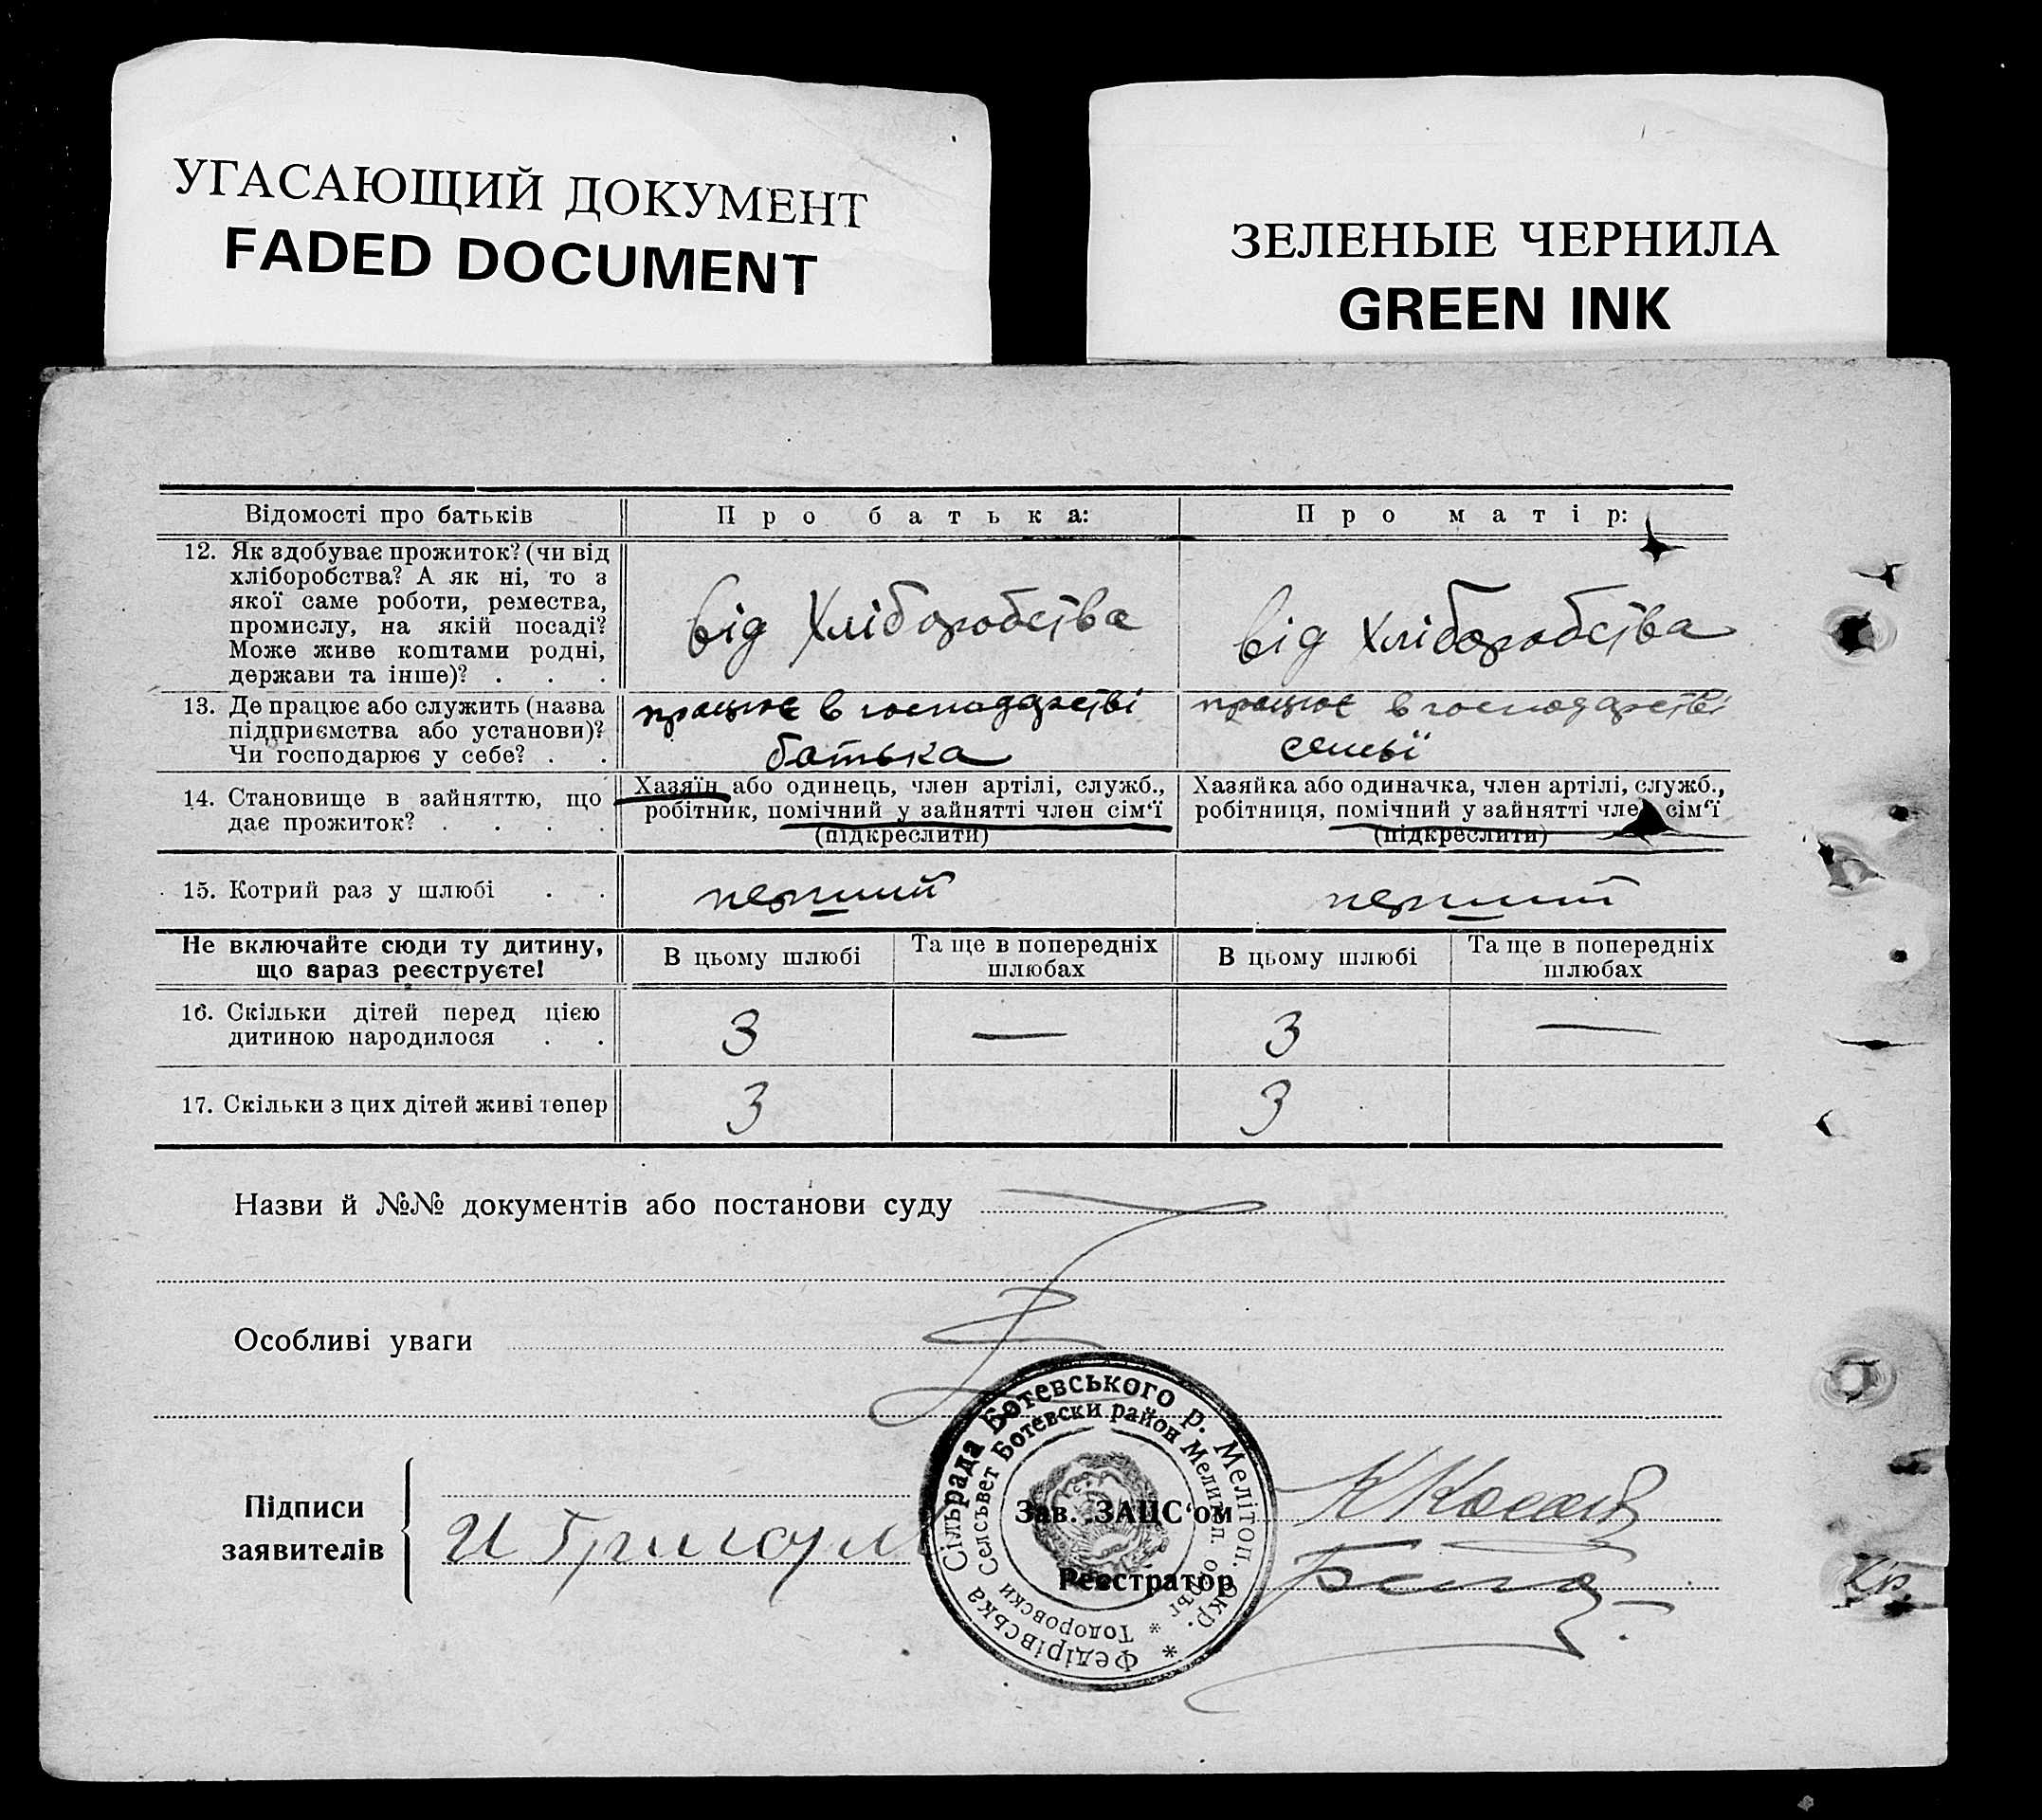 УГАСАЮЩИЙ ДОКУМЕНТ
FADED DOCUMENT
ЗЕЛЕНЫЕ ЧЕРНИЛА
GREEN INK
Відомості про батьків
Про батька:
Про матір:
12. Як здобуває прожиток? (чи від
хліборобства? А як ні, то з
якої саме роботи, ремества,
промислу, на якій посаді?
Може живе коштами родні,
держави та інше)? . . .
від Хліборобства
від хліборобства
13. Де працює або служить (назва
підприємства або установи)?
Чи господарює у себе? . .
працює в господарстві
батька
працює в господарстві
семьї
14. Становище в зайняттю, що
дає прожиток? . . . .
Хазяїн або одинець, член артілі, служб.,
робітник, помічний у зайнятті член сім‘ї
(підкреслити)
Хазяйка або одиначка, член артілі, служб.,
робітниця, помічний у зайнятті член сім‘ї
(підкреслити)
15. Котрий раз у шлюбі . .
перший
перший
Не включайте сюди ту дитину,
що зараз реєструєте!
В цьому шлюбі
Та ще в попередніх
шлюбах
В цьому шлюбі
Та ще в попередніх
шлюбах
16. Скільки дітей перед цією
дитиною народилося . .
3
—
3
—
17. Скільки з цих дітей живі тепер
3
3
Назви й №№ документів або постанови суду
Особливі уваги
Підписи
заявителів
Зав. ЗАЦС‘ом
Реєстратор
Федірівська Сільрада Ботевського р. Мелітоп. окр. *
Тодоровски Селсьвет Ботевски район Мелитоп. окръг *